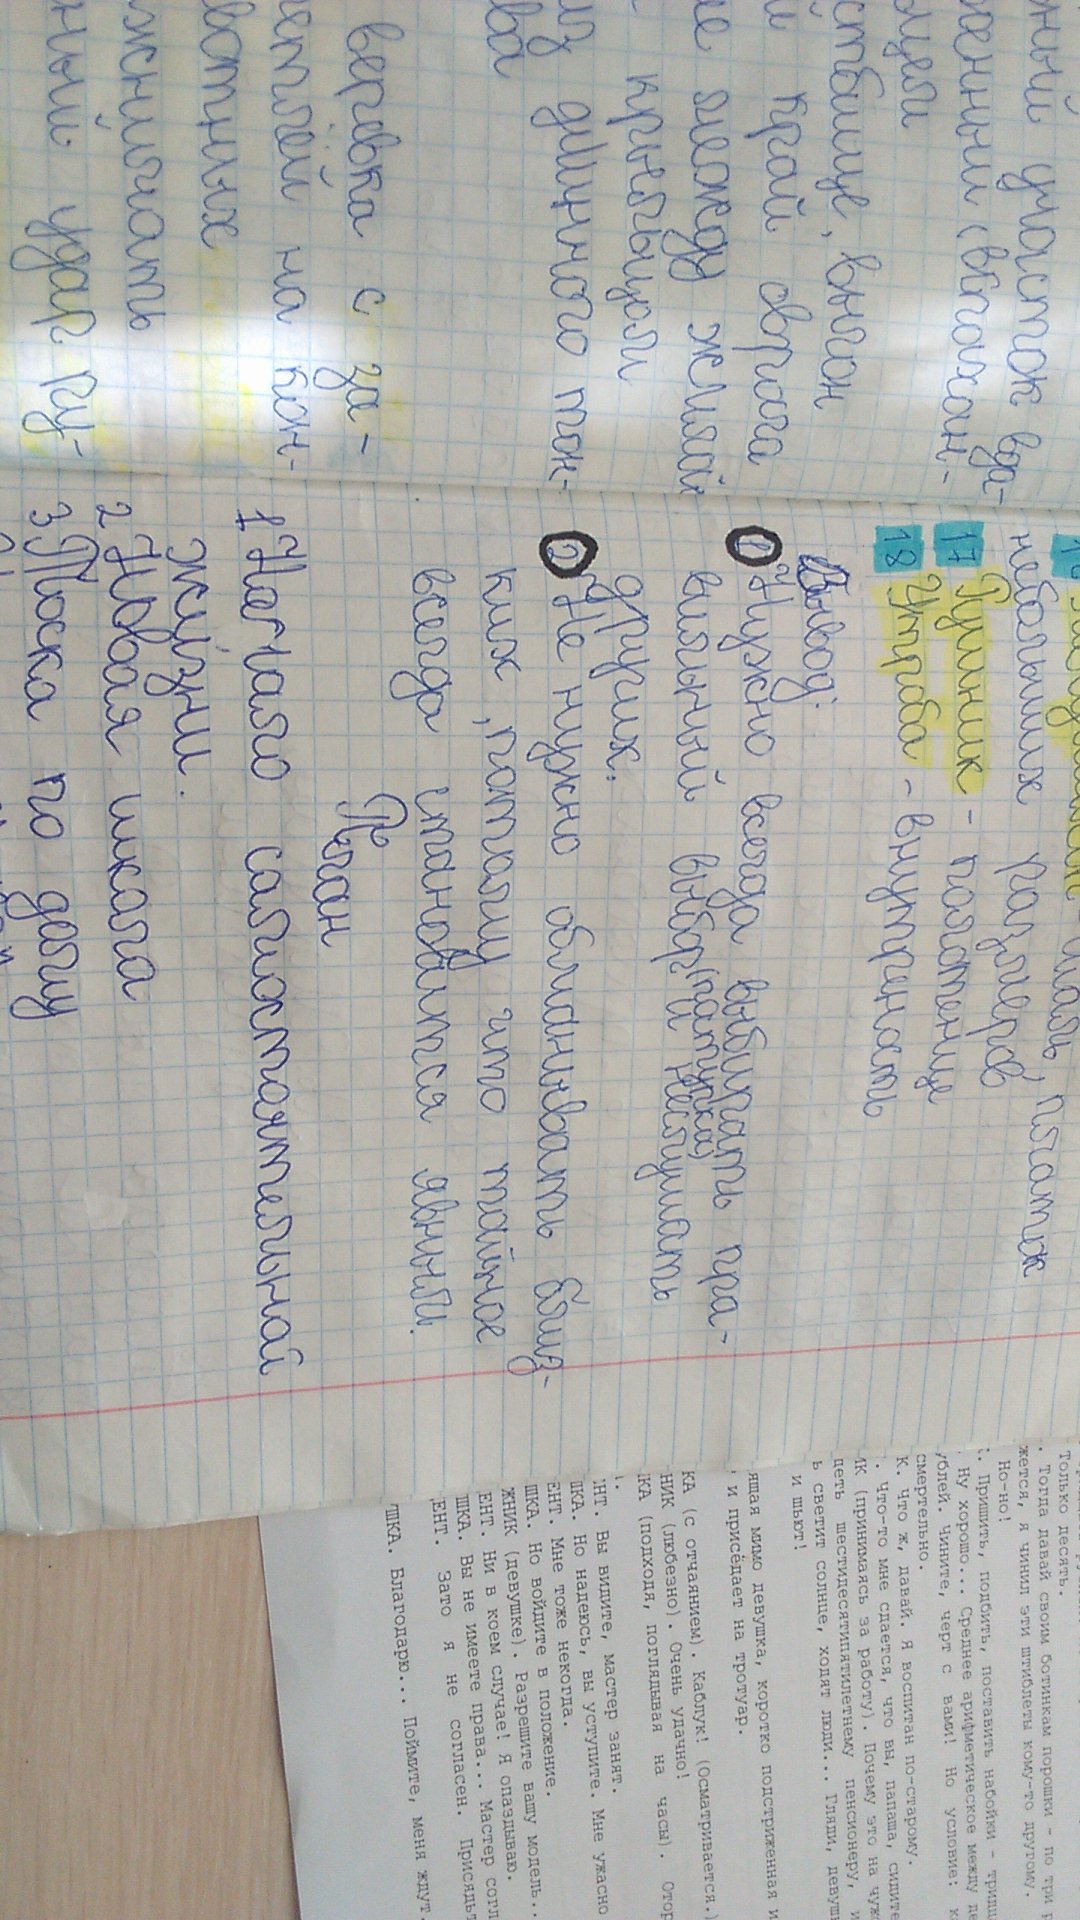 ный участок вда-
стбище, выгон
й край оврага
не между жилой
крыльцом
из длинного тон-
ва
верёвка с за-
петлёй на кон-
вотных
жничать
ный удар ру-
небольших размеров
17 Рушник - полотенце
18 Утроба - внутренность
Вывод:
1 Нужно всегда выбирать пра-
вильный выбор и не слушать
других.
2 Не нужно обманывать близ-
ких, потому что тайное
всегда становится явным.
План
1 Начало самостоятельной
жизни.
2 Новая школа
3 Тоска по дому
только десять.
. Тогда давай своим ботинкам порошки - по три р
жется, я чинил эти штиблеты кому-то другому.
Но-но!
. Пришить, подбить, поставить набойки - трица
Ну хорошо... Среднее арифметическое между де
ублей. Чините, черт с вами! Но условие: к
смертельно.
к. Что ж, давай. Я воспитан по-старому.
. Что-то мне сдается, что вы, папаша, сидите
ИК (принимаясь за работу). Почему это на чуж
деть шестидесятипятилетнему пенсионеру, и
ь светит солнце, ходят люди... Гляди, девушк
и шьют!
ящая мимо девушка, коротко подстриженная и
, и присёдает на тротуар.
КА (с отчаянием). Каблук! (Осматривается.)
НИК (любезно). Очень удачно!
КА (подходя, поглядывая на часы). Отор
НТ. Вы видите, мастер занят.
ШКА. Но надеюсь, вы уступите. Мне ужасно
ЕНТ. Мне тоже некогда.
ШКА. Но войдите в положение.
ЖНИК (девушке). Разрешите вашу модель..
ЕНТ. Ни в коем случае! Я опаздываю.
ШКА. Вы не имеете права... Мастер согл
ЕНТ. Зато я не согласен. Присядьт
УШКА. Благодарю... Поймите, меня ждут.